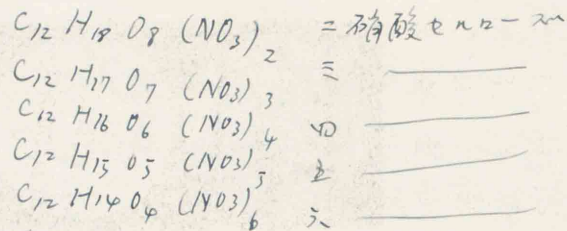 C12 H18 O8 (NO3)2 二硝酸セルロース
C12 H17 O7 (NO3)3 三 ——
C12 H16 O6 (NO3)4 四 ——
C12 H15 O5 (NO3)5 五 ——
C12 H14 O4 (NO3)6 六 ——